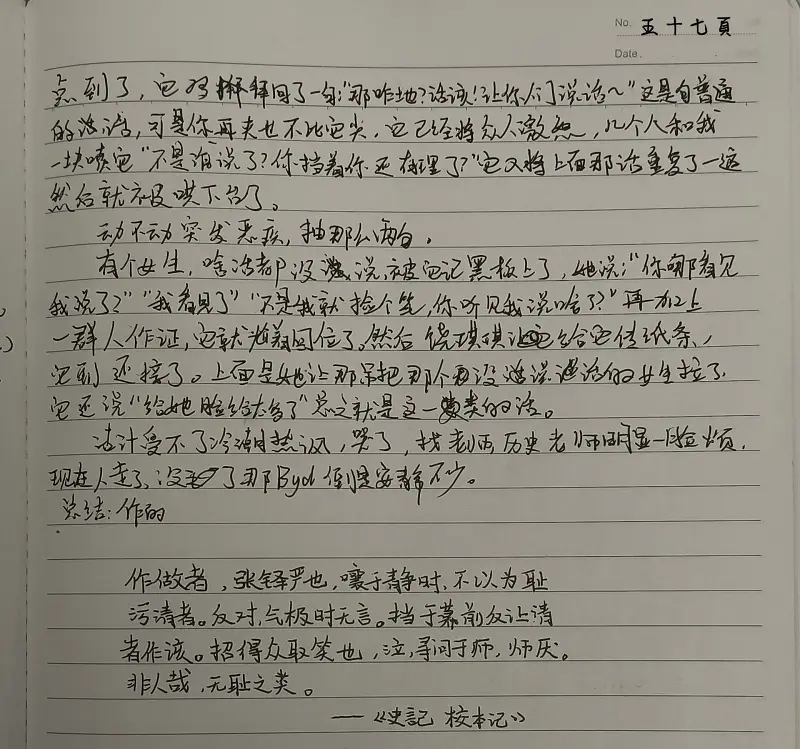 No. 五十七頁
Date.
点到了，它将掰释回了一句："那咋地？活该！让你人们说话～"这是句普通
的浊话，可是你再夹也不比它尖，它已经将众人激怒，几个人和我
一块喷它"不是谁说了？你挡着你还有理了？"它又将上面那话重复了一遍
然后就被哄下台了。
动不动突发恶疾，抽那么两台。
有个女生，啥活都没说被它记黑板上了，她说："你哪看见
我说了？""我看见了""不是我就捡个笔，你听见我说啥了？"再加上
一群人作证，它就回位了。然后让它给它传纸条，
它到还接了。上面是她让那把那个再没说话的女生拉了
它还说"给她脸给太多了"总之就是这一类的话。
估计受不了冷潮热讽，哭了，找老师历史老师明显一脸烦，
现在人走了，没了那Byd倒是安静不少。
总结：作的
作做者，张铎严也，嚷于静时，不以为耻
污清者。反对，气极时无言。挡于幕前反让请
者作该。招得众取笑也，泣，寻问于师，师厌。
非人哉，无耻之类。
——《史記 校本记》